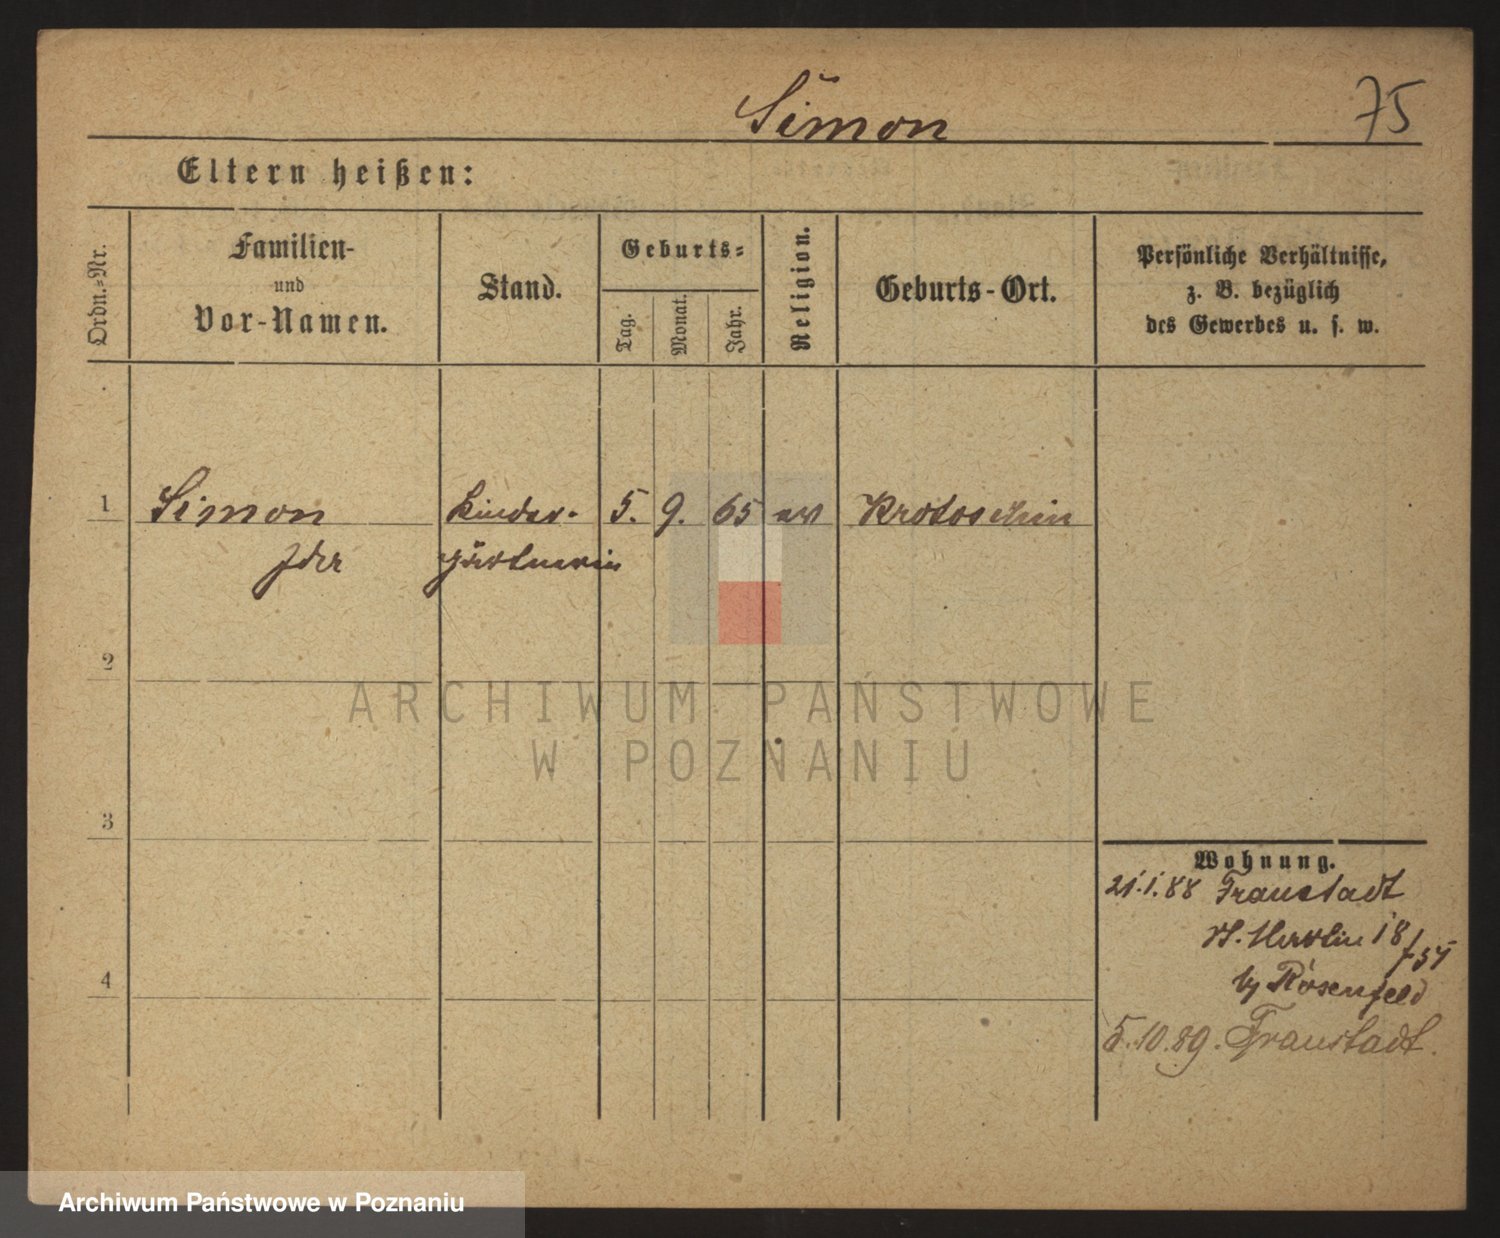 Simon 75
Eltern heißen:
Ordn.-Nr.
Familien-
und
Vor-Namen.
Stand.
Geburts-
Tag.
Monat.
Jahr.
Religion.
Geburts-Ort.
Persönliche Verhältnisse,
z. B. bezüglich
des Gewerbes u. s. w.
1 Simon Kinder- 5. 9. 65 Krotoschin
gärtnerin
2
ARCHIWUM PAŃSTWOWE
W POZNANIU
3
Wohnung.
21.1.88 Fraustadt
St. Martin 18
Rosenfeld
4
5.10.89. Fraustadt.
Archiwum Państwowe w Poznaniu